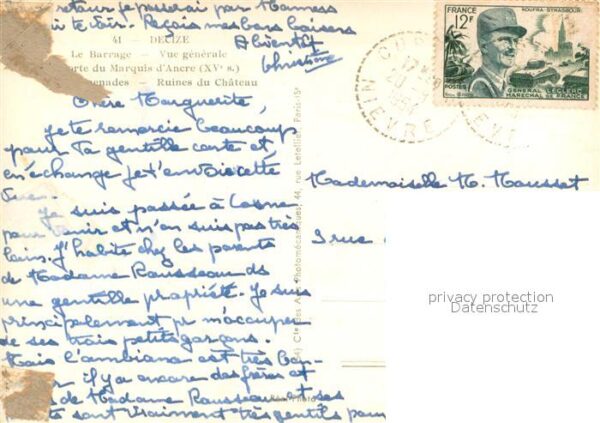 retour je passerai par
te voir. Reçois mes bons baisers
A bientôt
Christiane
41 — DECIZE
Le Barrage — Vue générale
Porte du Marquis d'Ancre (XVe s.)
Promenades — Ruines du Château
Chère Marguerite,
Je te remercie beaucoup
pour ta gentille carte et
en échange je t'envoie cette
vue.
Je suis passée à Cosne
pour venir et n'en suis pas très
loin. J'habite chez les parents
de Madame Rousseau ds
une gentille propriété. Je suis
principalement pr m'occuper
de ses trois petits garçons.
Mais l'ambiance est très bon-
il y a encore des frères et
de Madame Rousseau et ses
sont vraiment très gentils pour
Photomécaniques, 44, rue Letellier, Paris-15e
Réel-Photo
FRANCE
12F
KOUFRA STRASBOURG
POSTES
GENERAL LECLERC
MARECHAL DE FRANCE
NIEVRE
Mademoiselle M. Moussat
3 rue
privacy protection
Datenschutz